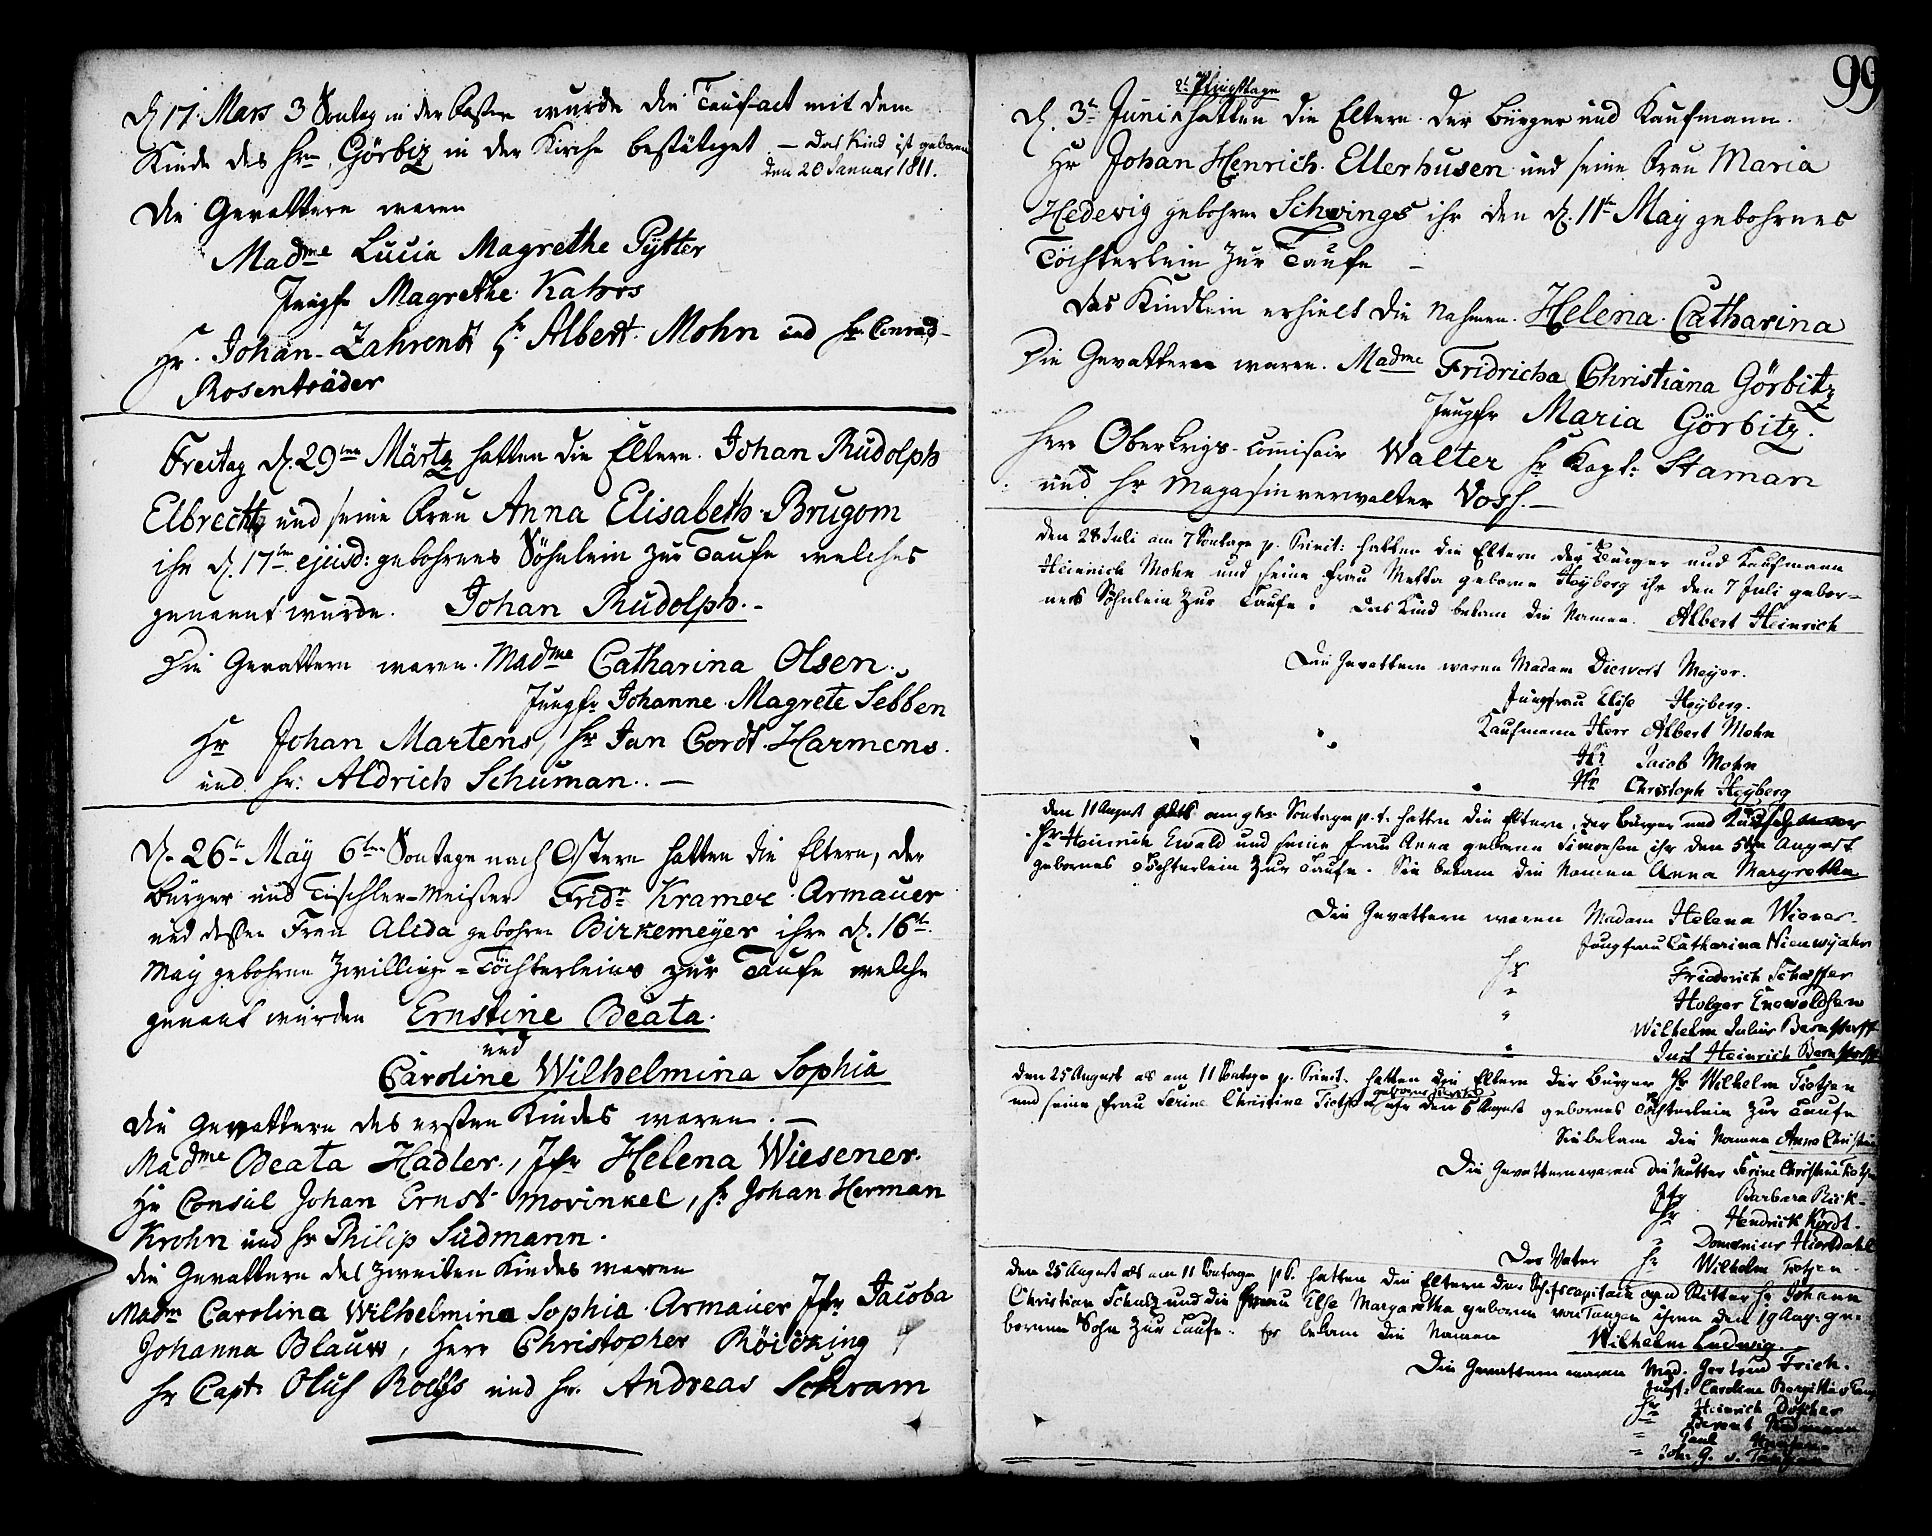 d. 17. Mars 3 Sontag in der Fasten wurde die Tauf-act mit dem
Kinde des Hrn Görbiz in der Kirche bestätiget – Das Kind ist geboren
den 20 Januar 1811.
Die Gevattern waren
Madme Lucia Magrethe Pytter
Jungfr Magrethe Kahrs
Hr. Johan Zahrendt Hr Albert Mohn und Hr Conrad
Rosenträder
Freitag d. 29ten Märtz hatten die Eltern Johan Rudolph
Elbrecht und seine Frau Anna Elisabeth Brugom
ihr d. 17ten ejusd: gebohrnes Söhnlein zur Taufe welches
genennt wurde. Johan Rudolph.
Die Gevattern waren. Madme Catharina Olsen.
Jungfr Johanne Magrete Sebben
Hr Johan Martens, Hr Jan Cordt Harmens.
und Hr: Aldrich Schuman. –
d. 26t May 6ten Sontage nach Ostern hatten die Eltern, der
Bürger und Tischler-Meister Fridr Kramer Armauer
und dessen Frau Alida gebohrn Birkemeyer ihre d. 16t
May gebohrne Zwillings-Töchterleins zur Taufe welche
genant wurden Ernstine Beata.
und
Caroline Wilhelmina Sophia
die Gevattern des ersten Kindes waren. –
Madme Beata Hadler., Jfr Helena Wiesener.
Hr Consul Johan Ernst Movinkel, Hr Johan Herman
Krohn und Hr Philip Südmann.
die Gevattern des zweiten Kindes waren
Madm Carolina Wilhelmina Sophia Armauer Jfr Jacoba
Johanna Blauw, Herr Christopher
Hr Capt. Oluf Rolfs und Hr. Andreas Schram
99
2t Pfingsttage
d. 3t Juni hatten die Eltern der Bürger und Kaufmann.
Hr Johan Henrich Ellerhusen und seine Frau Maria
Hedevig gebohrne Schwings ihr den d. 11t May gebohrnes
Töchterlein zur Taufe –
Das Kindlein erhielt die Nahmen. Helena Catharina
Die Gevattern waren. Madme Fridricha Christiana Görbitz
Jungfr Maria Görbitz.
Herr Oberkrigs-Comisair Walter Hr Capt: Staman
und Hr Magasinverwalter Voss. –
Den 28 Juli am 7 Sontage p. Trinit: hatten die Eltern der Bürger und Kaufmann
Heinrich Mohn und seine Frau Metta geborne Heyberg ihr den 7 Juli gebor-
nes Söhnlein zur Taufe. Das Kind bekam die Namen. Albert Heinrich
Die Gevattern waren Madam Diewert Meyer.
Jungfrau Elise Heyberg.
Kaufmann Herr Albert Mohn
Hr Jacob Mohn
Hr Christoph Heyberg
Den 11 August am 9ten Sontage p. t. hatten die Eltern, der Bürger und
Hr Heinrich Ewald und seine Frau Anna geborne Simonsen ihr den 5ten August
gebornes Töchterlein zur Taufe. Sie bekam die Namen Anna Margretha
Die Gevattern waren Madam Helena Wiener.
Jungfrau Catharina Nieuwejahr
Hr Friederich Schæffer
" Holger Enewoldsen
" Wilhelm Julius Bernstorff
" Just Heinrich Bernstorff
Den 25 August als am 11 Sontage p. Trinit. hatten die Eltern der Bürger Hr Wilhelm Tietjen
und seine Frau Serine Christine Tietjen ihr den 6 August gebornes Töchterlein zur Taufe
Sie bekam die Namen Anna Christine
Die Gevattern waren die Mutter Serine Christine Tietjen
Jfr Barbara Rick.
Hr Hendrick Kordt.
" Domenius Hiortdahl
Der Vater Hr Wilhelm Tietjen.
Den 25 August als am 11 Sontage p.t. hatten die Eltern der Schifscapitain und Ritter Hr Johann
Christian Schulz und die Frau Else Margaretha geborne von Tangen ihren den 19 Aug. ge-
bornen Sohn zur Taufe. Er bekam die Namen
Wilhelm Ludwig.
Die Gevattern waren Mad. Gertrud Frich.
Jungf: Caroline
Hr Heinrich Döscher
" Paul
" Joh: G. v. Tangen